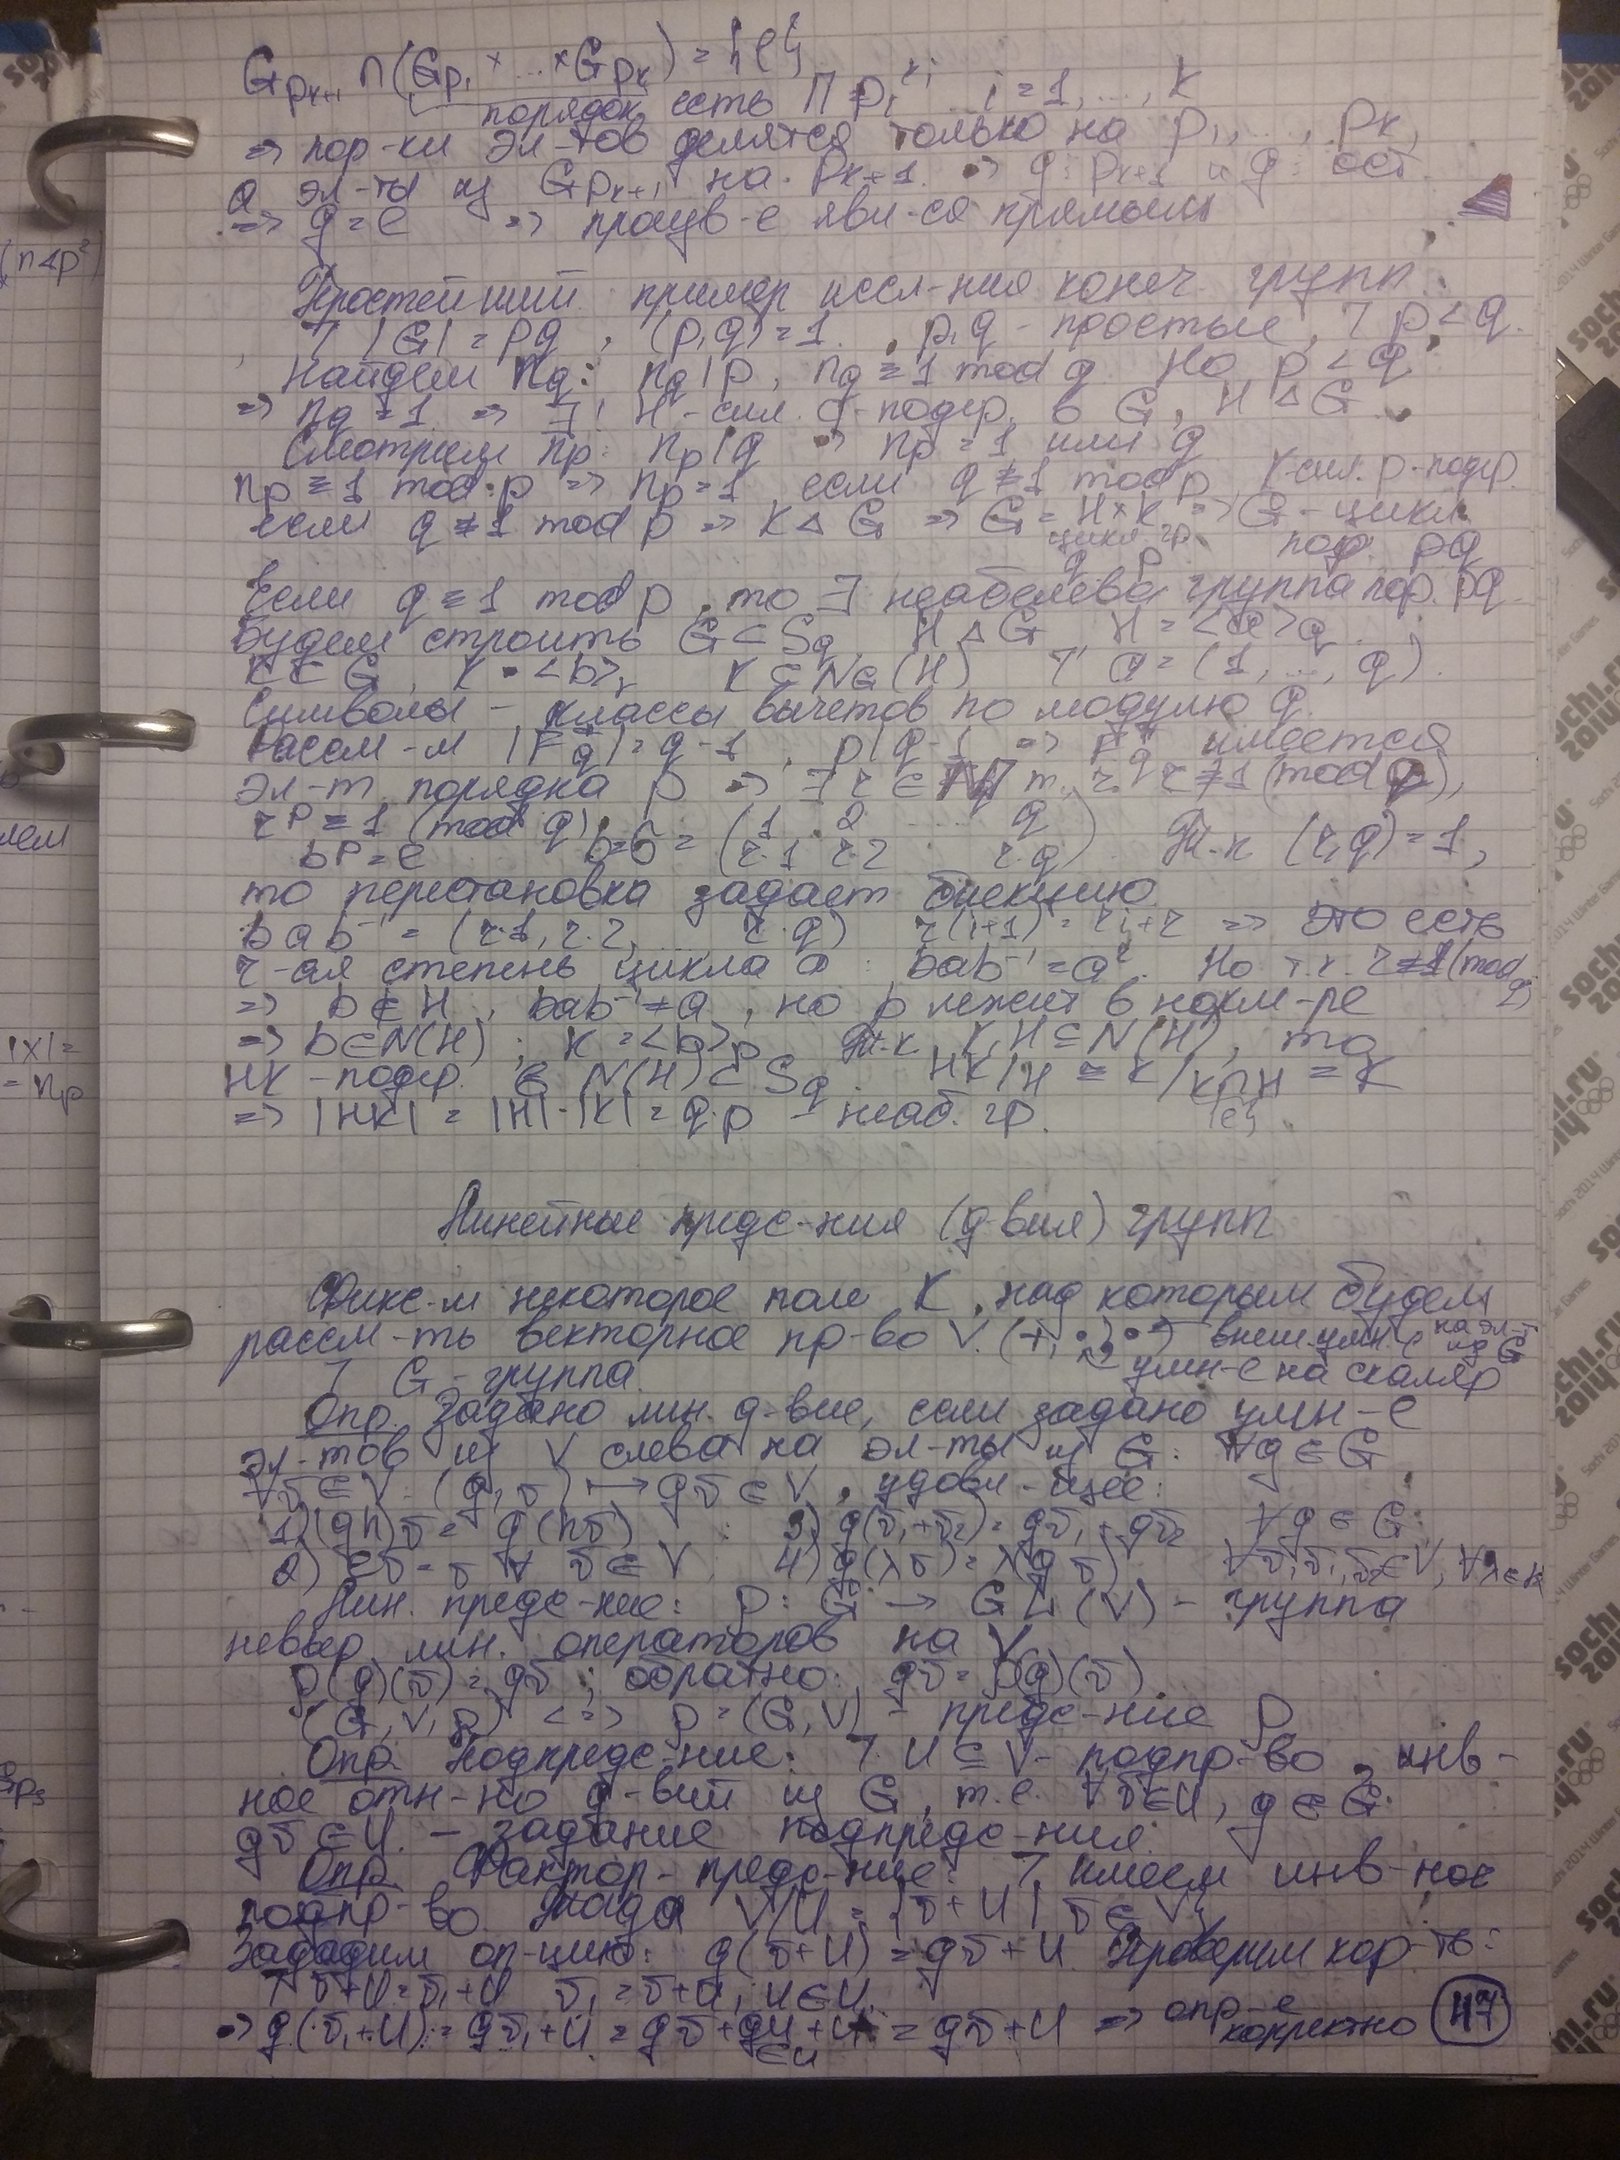 G_{p_{k+1}} ∩ (G_{p_1} × ... × G_{p_k}) = {e}
порядок есть П p_i^{k_i} i = 1, ..., k
=> пор-ки эл-тов делятся только на p_1, ..., p_k,
а эл-ты из G_{p_{k+1}} на p_{k+1} => g ⋮ p_{k+1} и g ⋮ ост.
=> g = e => произв-е явл-ся прямым
Простейший пример иссл-ния конеч. групп.
] |G| = pq, (p,q) = 1, p,q - простые, ] p < q.
Найдем n_q: n_q | p, n_q ≡ 1 mod q. Но p < q
=> n_q = 1 => ∃! H - сил. q-подгр. в G, H ⊲ G.
Смотрим n_p: n_p | q => n_p = 1 или q
n_p ≡ 1 mod p => n_p = 1, если q ≢ 1 mod p K-сил. p-подгр.
если q ≢ 1 mod p => K ⊲ G => G = H × K => G - цикл.
цикл. гр. пор. pq
q p
Если q ≡ 1 mod p, то ∃ неабелева группа пор. pq.
Будем строить G ⊂ S_q, H ⊲ G, H = <a>_q
K ⊂ G, K = <b>, K ⊆ N_G(H) ] a = (1, ..., q).
Символы - классы вычетов по модулю q.
Рассм-м |F_q^*| = q-1, p | q-1 => F_q^* имеется
эл-т порядка p => ∃ r ∈ N, т. ч. r ≢ 1 (mod q),
r^p ≡ 1 (mod q) b = σ = (1 2 ... q
b^p = e r·1 r·2 r·q). Т.к (r,q) = 1,
то перестановка задает биекцию
bab^{-1} = (r·1, r·2, ... r·q) r(i+1) = ri + r => это есть
r-ая степень цикла a: bab^{-1} = a^r. Но т.к. r ≢ 1 (mod q)
=> b ∉ H, bab^{-1} ≠ a, но b лежит в норм-ре
=> b ∈ N(H); K = <b>_p Т.к. K, H ⊆ N(H), то
HK - подгр. в N(H) ⊂ S_q. HK/H ≅ K/K∩H = K
{e}
=> |HK| = |H|·|K| = q·p - неаб. гр.
Линейные предс-ния (д-вия) групп
Фикс-м некоторое поле K, над которым будем
рассм-ть векторное пр-во V. (+, ·, ·) внеш. умн. на эл-т из G
умн-е на скаляр
] G - группа
Опр. Задано лин. д-вие, если задано умн-е
эл-тов из V слева на эл-ты из G: ∀g ∈ G
∀v ∈ V: (g, v) ↦ gv ∈ V, удовл-щее:
1) (gh)v = g(hv) 3) g(v_1+v_2) = gv_1 + gv_2 ∀g ∈ G
2) ev = v ∀ v ∈ V 4) g(λv) = λ(gv) ∀v, v_1, v_2 ∈ V, ∀λ ∈ K
Лин. предс-ние: ρ: G → GL(V) - группа
невыр лин. операторов на V
ρ(g)(v) = gv; обратно: gv = ρ(g)(v)
(G, V, ρ) <=> ρ = (G, V) - предс-ние ρ
Опр. Подпредс-ние: ] U ⊆ V - подпр-во, инв-
ное отн-но д-вий из G, т.е. ∀v ∈ U, g ∈ G
gv ∈ U. - задание подпредс-ния.
Опр. Фактор-предс-ние: ] имеем инв-ное
подпр-во. Тогда V/U = {v + U | v ∈ V}
Зададим оп-цию: g(v+U) = gv+U. Проверим кор-ть:
] v+U = v_1+U v_1 = v+u, u ∈ U
=> g(v_1+U) = gv_1+U = gv+gu+U = gv+U => опр-е
∈U корректно
47
(n<p²)
лем
|X| =
= n_p
sochi.ru
2014